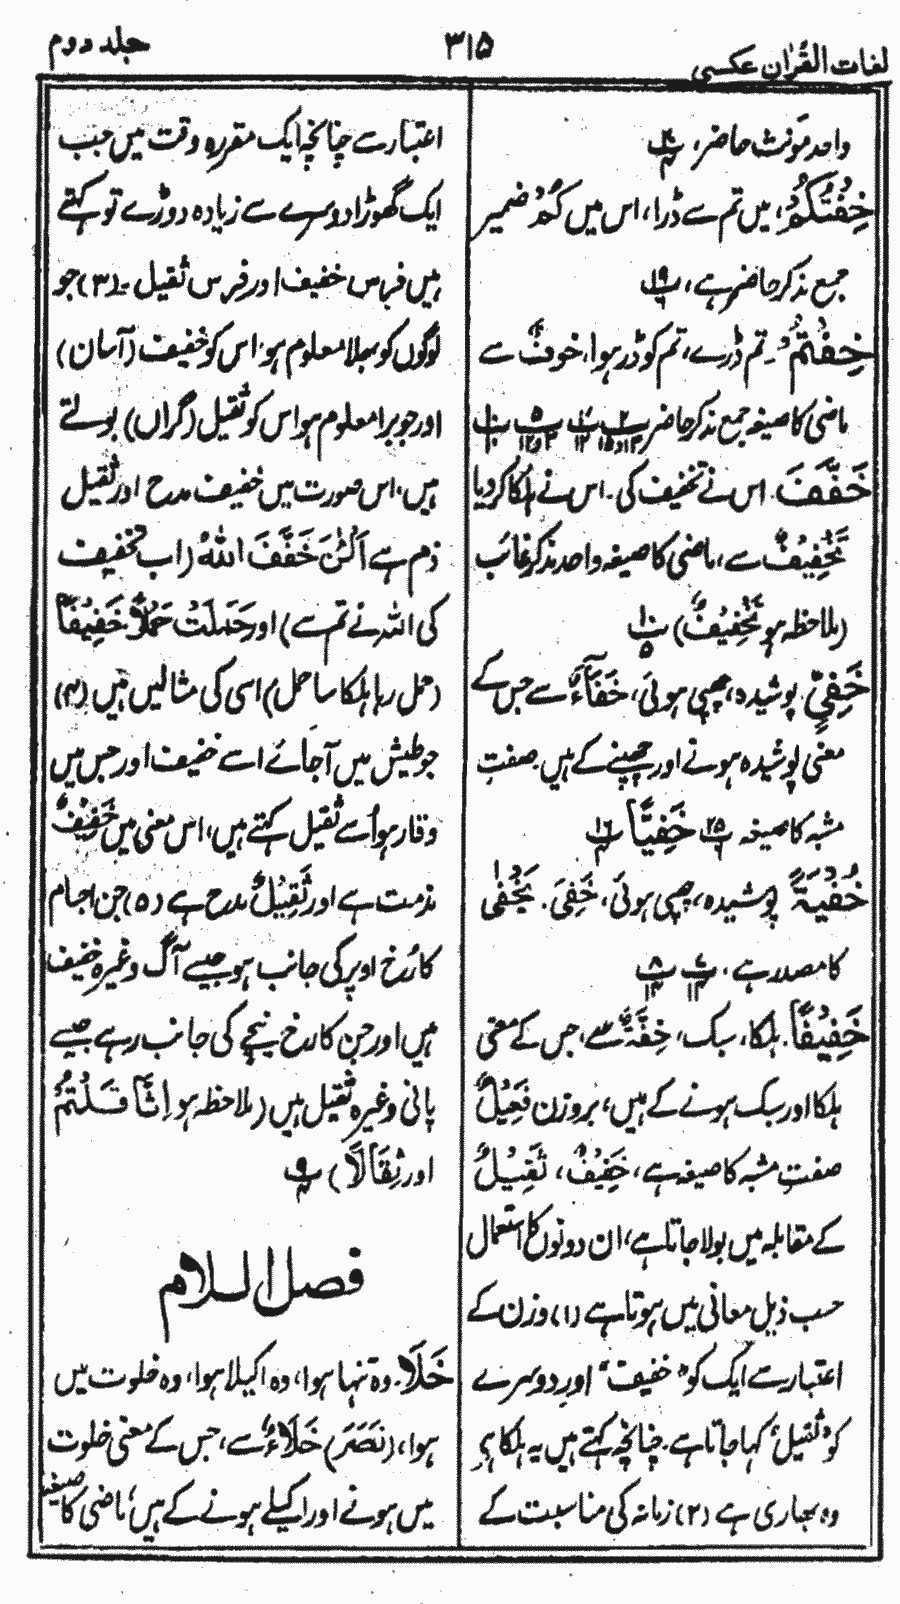 لغات القرآن عکسی
۳۱۵
جلد دوم
واحد مونث حاضر،
خِفْتُکُمْ، میں تم سے ڈرا، اس میں کُمْ ضمیر
جمع مذکر حاضر ہے،
خِفْتُمْ ۔ تم ڈرے، تم کو ڈر ہوا، خوف سے
ماضی کا صیغہ جمع مذکر حاضر
خَفَّفَ ۔ اس نے تخفیف کی ۔ اس نے ہلکا کردیا
تَخْفِیْفٌ سے، ماضی کا صیغہ واحد مذکر غائب
(ملاحظہ ہو تَخْفِیْفٌ)
خَفِیٍّ ۔ پوشیدہ، چھپی ہوئی، خَفَآءٌ سے جس کے
معنی پوشیدہ ہونے اور چھپنے کے ہیں ۔ صفتِ
مشبہ کا صیغہ خَفِیًّا
خُفْیَۃً پوشیدہ، چھپی ہوئی، خَفِیَ ۔ یَخْفٰی
کا مصدر ہے،
خَفِیْفًا ۔ ہلکا، سبک، خِفَّۃٌ سے، جس کے معنی
ہلکا اور سبک ہونے کے ہیں، بروزن فَعِیْلٌ
صفتِ مشبہ کا صیغہ ہے، خَفِیْفٌ، ثَقِیْلٌ
کے مقابلہ میں بولا جاتا ہے، ان دونوں کا استعمال
حسب ذیل معانی میں ہوتا ہے (۱) وزن کے
اعتبار سے ایک کو "خفیف" اور دوسرے
کو "ثقیل" کہا جاتا ہے ۔ چنانچہ کہتے ہیں یہ ہلکا ہے
وہ بھاری ہے (۲) زمانہ کی مناسبت کے
اعتبار سے چنانچہ ایک مقررہ وقت میں جب
ایک گھوڑا دوسرے سے زیادہ دوڑے تو کہتے
ہیں فرس خفیف اور فرس ثقیل ۔ (۳) جو
لوگوں کو بھلا معلوم ہو، اس کو خفیف (آسان)
اور جو برا معلوم ہو اس کو ثقیل (گراں) بولتے
ہیں، اس صورت میں خفیف مدح اور ثقیل
ذم ہے اَلْئٰنَ خَفَّفَ اللّٰہُ (اب تخفیف
کی اللہ نے تم سے) اور حَمَلَتْ حَمْلًا خَفِیْفًا
(حمل رہا ہلکا سا حمل) اسی کی مثالیں ہیں (۴)
جو طیش میں آجائے اسے خفیف اور جس میں
وقار ہو اُسے ثقیل کہتے ہیں، اس معنی میں خَفِیْفٌ
مذمت ہے اور ثَقِیْلٌ مدح ہے (۵) جن اجسام
کا رُخ اوپر کی جانب ہو جیسے آگ وغیرہ خفیف
ہیں اور جن کا رخ نیچے کی جانب رہے جیسے
پانی وغیرہ ثقیل ہیں (ملاحظہ ہو اِثَّا قَلْتُمْ
اور ثِقَالًا)
فصل اللام
خَلَا ۔ وہ تنہا ہوا، وہ اکیلا ہوا، وہ خلوت میں
ہوا، (نَصَرَ) خَلَاءٌ سے، جس کے معنی خلوت
میں ہونے اور اکیلے ہونے کے ہیں، ماضی کا صیغہ